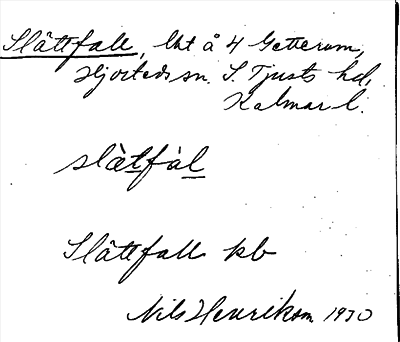 Slättfall, lht å 4 Getterum,
Hjorteds sn. S. Tjusts hd,
Kalmar l.
slàtfàl
Slättfall kb
Nils Henrikson 1930